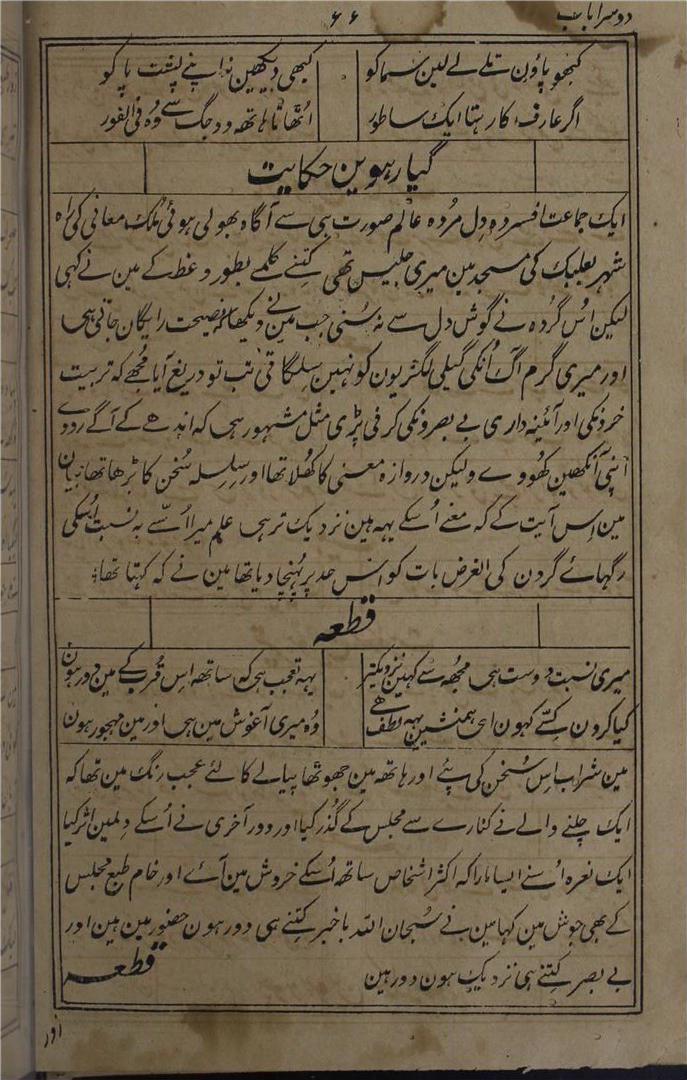 دوسرا باب
۶۶
کبھو پاؤن تلے لے لین سما کو کبھی دیکھین نہ اپنے پشت پا کو
اگر عارف کا رہتا ایک سا طور اُٹھاتا ہاتھ دو جگ سے وہ فی الفور
گیارہوین حکایت
ایک جماعت افسردہ دِل مُردہ عالم صورت ہی سے آگاہ بھولی ہوئی مُلک معانی کی راہ
شہر بعلبک کی مسجد مین میری جلیس تھی کتنے کلمے بطور وعظ کے مین نے کہی
لیکن اُس گروہ نے گوش دل سے نہ سُنی جب مین نے دیکھا کہ نصیحت رایگان جاتی ہی
اور میری گرم آگ اُنکی گیلی لکڑیون کو نہین سِلگاتی تب تو دریغ آیا مُجھے کہ تربیت
خرونکی اور آئینہ داری بے بصرونکی کرنی پڑی مثل مشہور ہی کہ اندھے کے آگے رووے
اپنی آنکھین کھووے ولیکن دروازہ معنی کا کھُلا تھا اور سِلسِلہ سُخن کا بڑھا تھا بیان
مین اِس آیت کے کہ معنے اُسکے یہہ ہین نزدیک تر ہی علم میرا اُسّے بہ نسبت اُسکی
رگہائے گردن کی الغرض بات کو اس حد پر پُہنچا دیا تھا مین نے کہ کہتا تھا
قطعہ
میری نسبت دوست ہی مجھ سے کہین نزدیکتر یہہ تعجب ہی کہ ساتھہ اِس قُرب کے مین دور ہون
کیا کرون کِسّے کہون ای ہمنشین یہہ لُطف ہے وُہ میری آغوش مین ہی اور مین مہجور ہون
مین شراب اِس سُخن کی پئے اور ہاتھہ مین جھوٹھا پیالے کا لئے عجب رنگ مین تھا کہ
ایک چلنے والے نے کنارے سے مجلس کے گُذر کیا اور دور آخری نے اُسکے دلمین اثر کیا
ایک نعرہ اُسنے ایسا مارا کہ اکثر اشخاص ساتھہ اُسکے خروش مین آئے اور خام طبع مجلس
کے بھی جوش مین کہا مین نے سُبحان اللہ باخبر کِتنے ہی دور ہون حضور مین ہین اور
بے بصر کِتنے ہی نزدیک ہون دور ہین قطعہ
اور